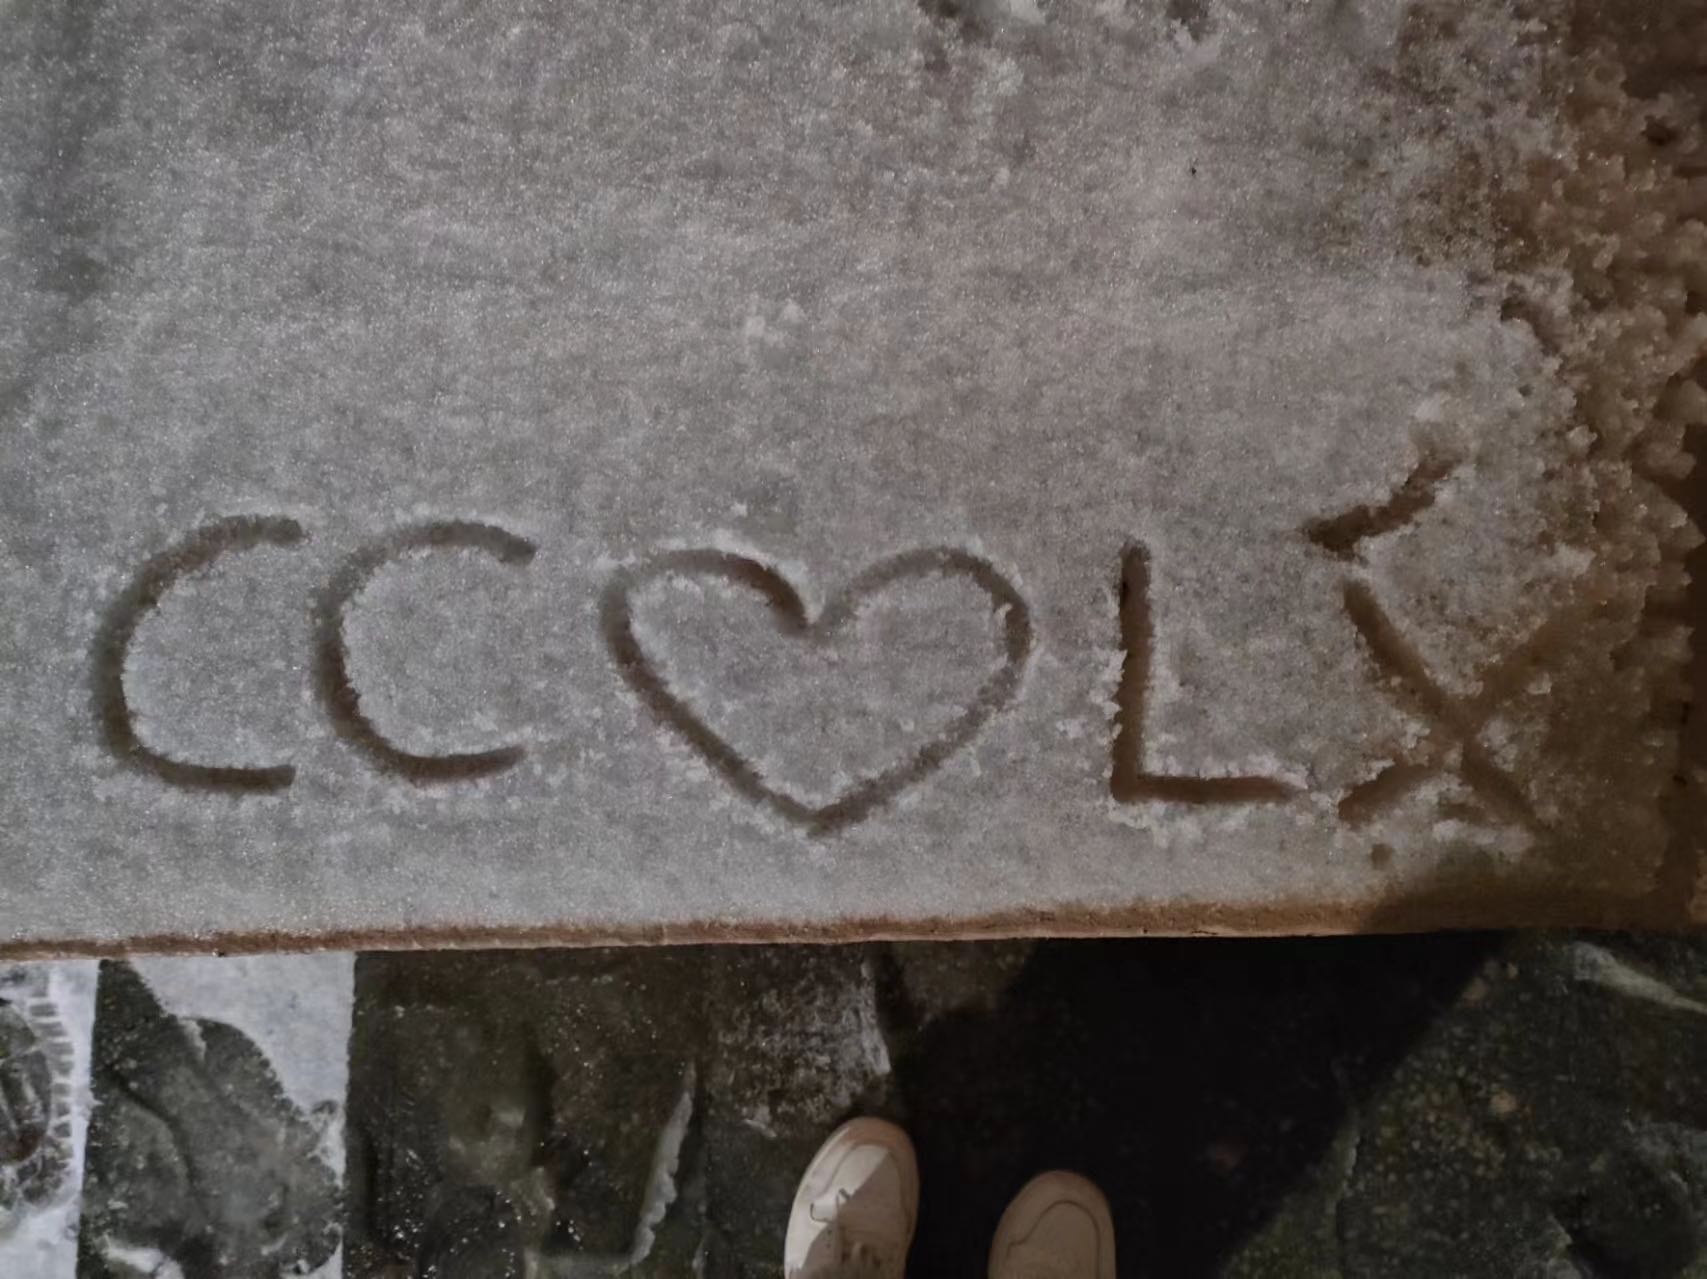 CC♡LX